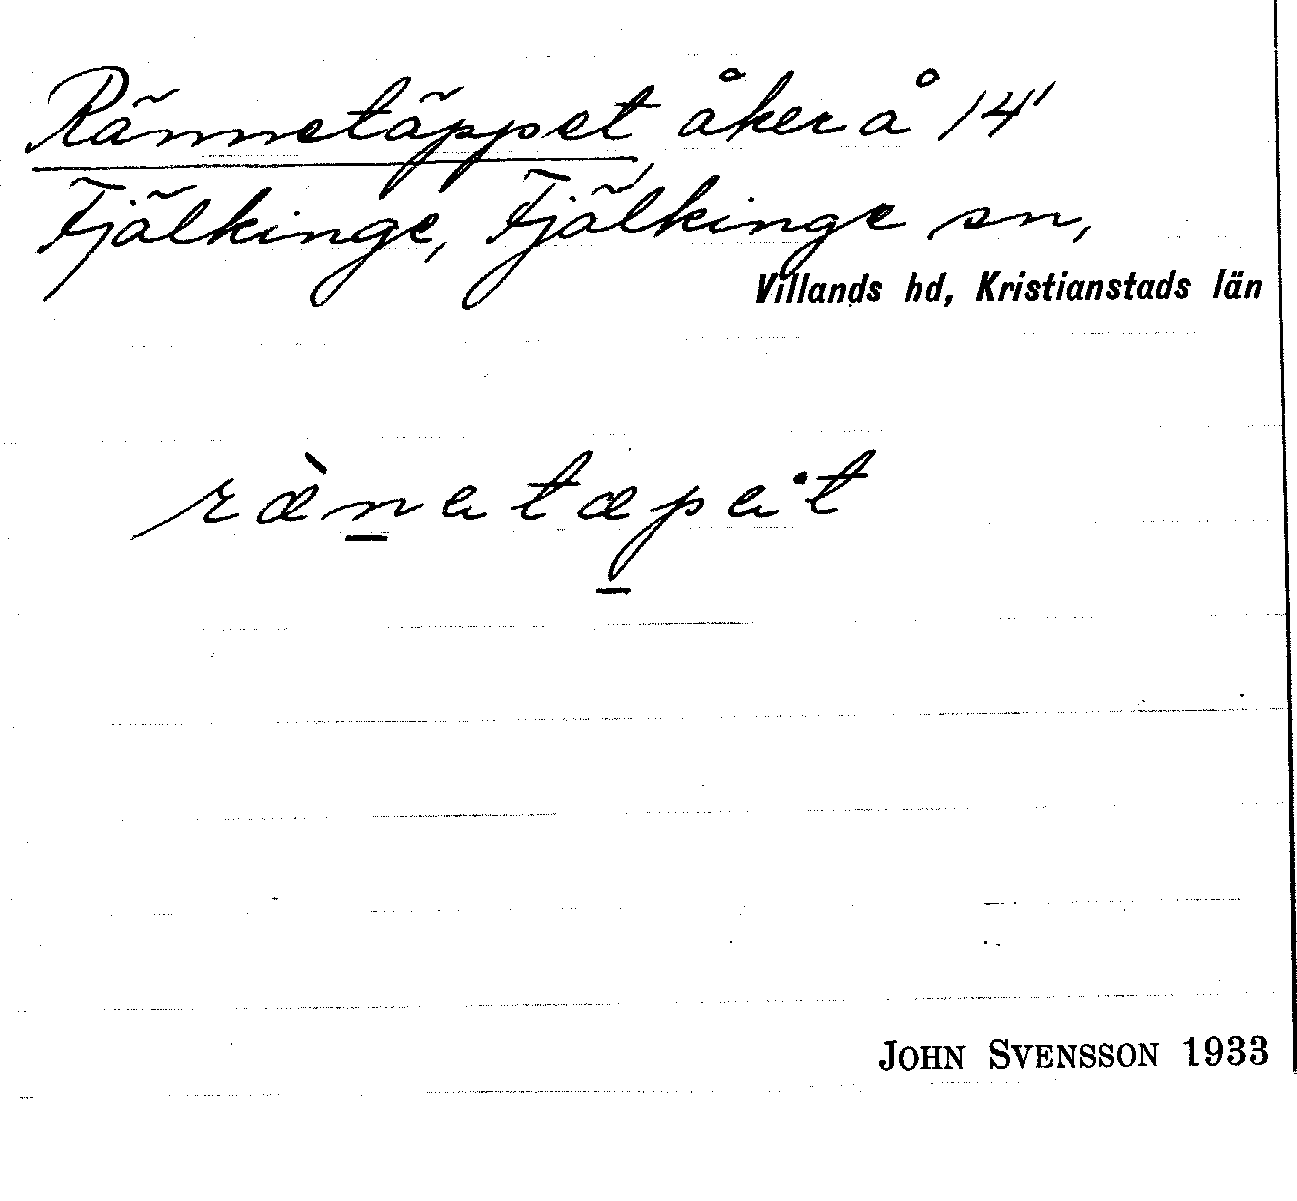 Rännetäppet, åker å 14'
Fjälkinge, Fjälkinge sn,
Villands hd, Kristianstads län
ræ̀n̲ətæp̲ə·t
JOHN SVENSSON 1933